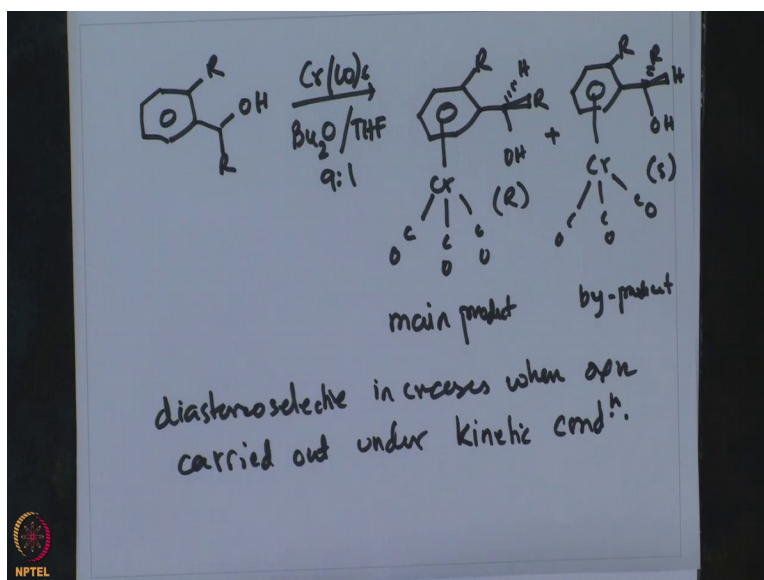 R
OH
R
Cr(CO)6
Bu2O/THF
9:1
R
H
R
OH
Cr
(R)
C C C
O O O
main product
+
R
R
H
OH
Cr
(S)
C C C
O O O
by-product
diastereoselective increases when rxn
carried out under kinetic condn.
NPTEL